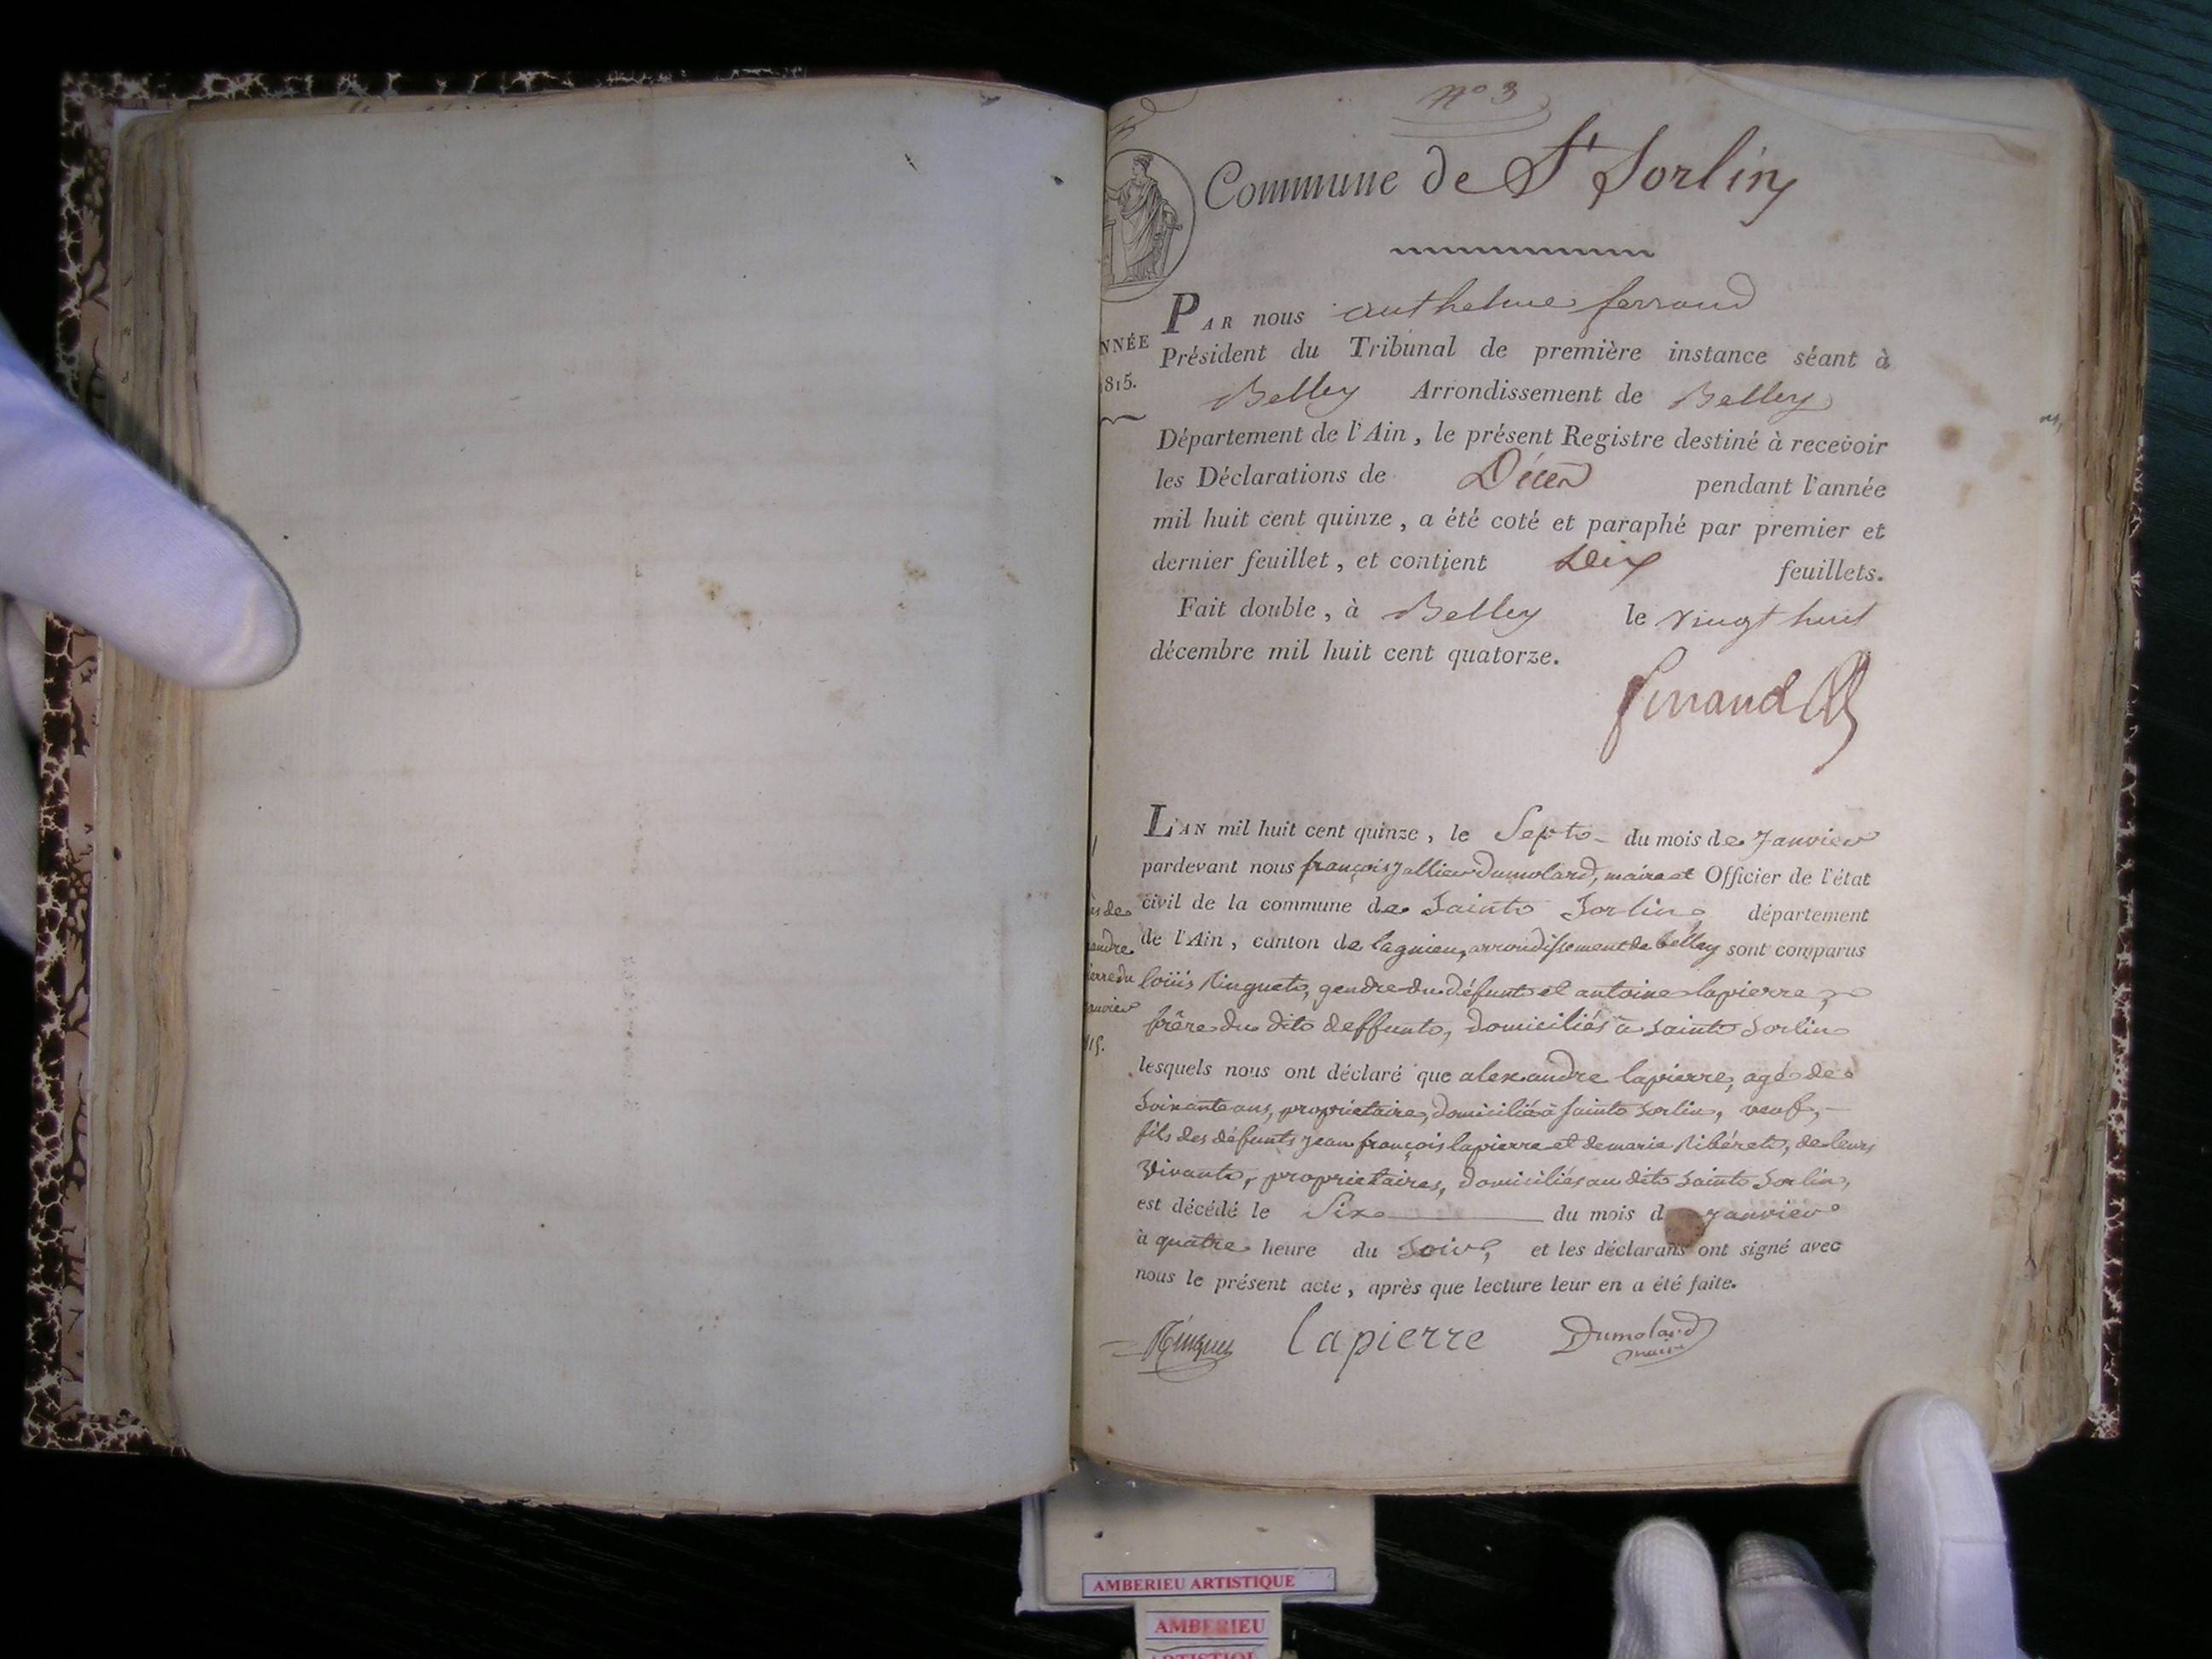 N° 3
Commune de St Sorlin
NNÉE
815.
PAR nous anthelme ferrand
Président du Tribunal de première instance séant à
Belley Arrondissement de Belley
Département de l'Ain, le présent Registre destiné à recevoir
les Déclarations de Décès pendant l'année
mil huit cent quinze, a été coté et paraphé par premier et
dernier feuillet, et contient Dix feuillets.
Fait double, à Belley le vingt huit
décembre mil huit cent quatorze.
ferrand
L'AN mil huit cent quinze, le Sept du mois de Janvier
pardevant nous françois Jallier Dumolard, maire et Officier de l'état
civil de la commune de Saint Sorlin département
de l'Ain, canton de lagnieu, arrondissement de belley sont comparus
loüis Ringuet, gendre du défunt et antoine lapierre,
frère du dit deffunt, domiciliés à saint Sorlin
lesquels nous ont déclaré que alexandre lapierre, agé de
soixante ans, propriétaire, domicilié à saint sorlin, veuf,
fils des défunts jean françois lapierre et de marie Ribéret, de leurs
vivant, propriétaires, domiciliés au dit saint Sorlin,
est décédé le Six du mois d janvier
à quatre heure du soir, et les déclarans ont signé avec
nous le présent acte, après que lecture leur en a été faite.
ès de
andre
ierre du
anvier
15.
Ringuet lapierre Dumolard
maire
AMBERIEU ARTISTIQUE
AMBERIEU
ARTISTIQUE